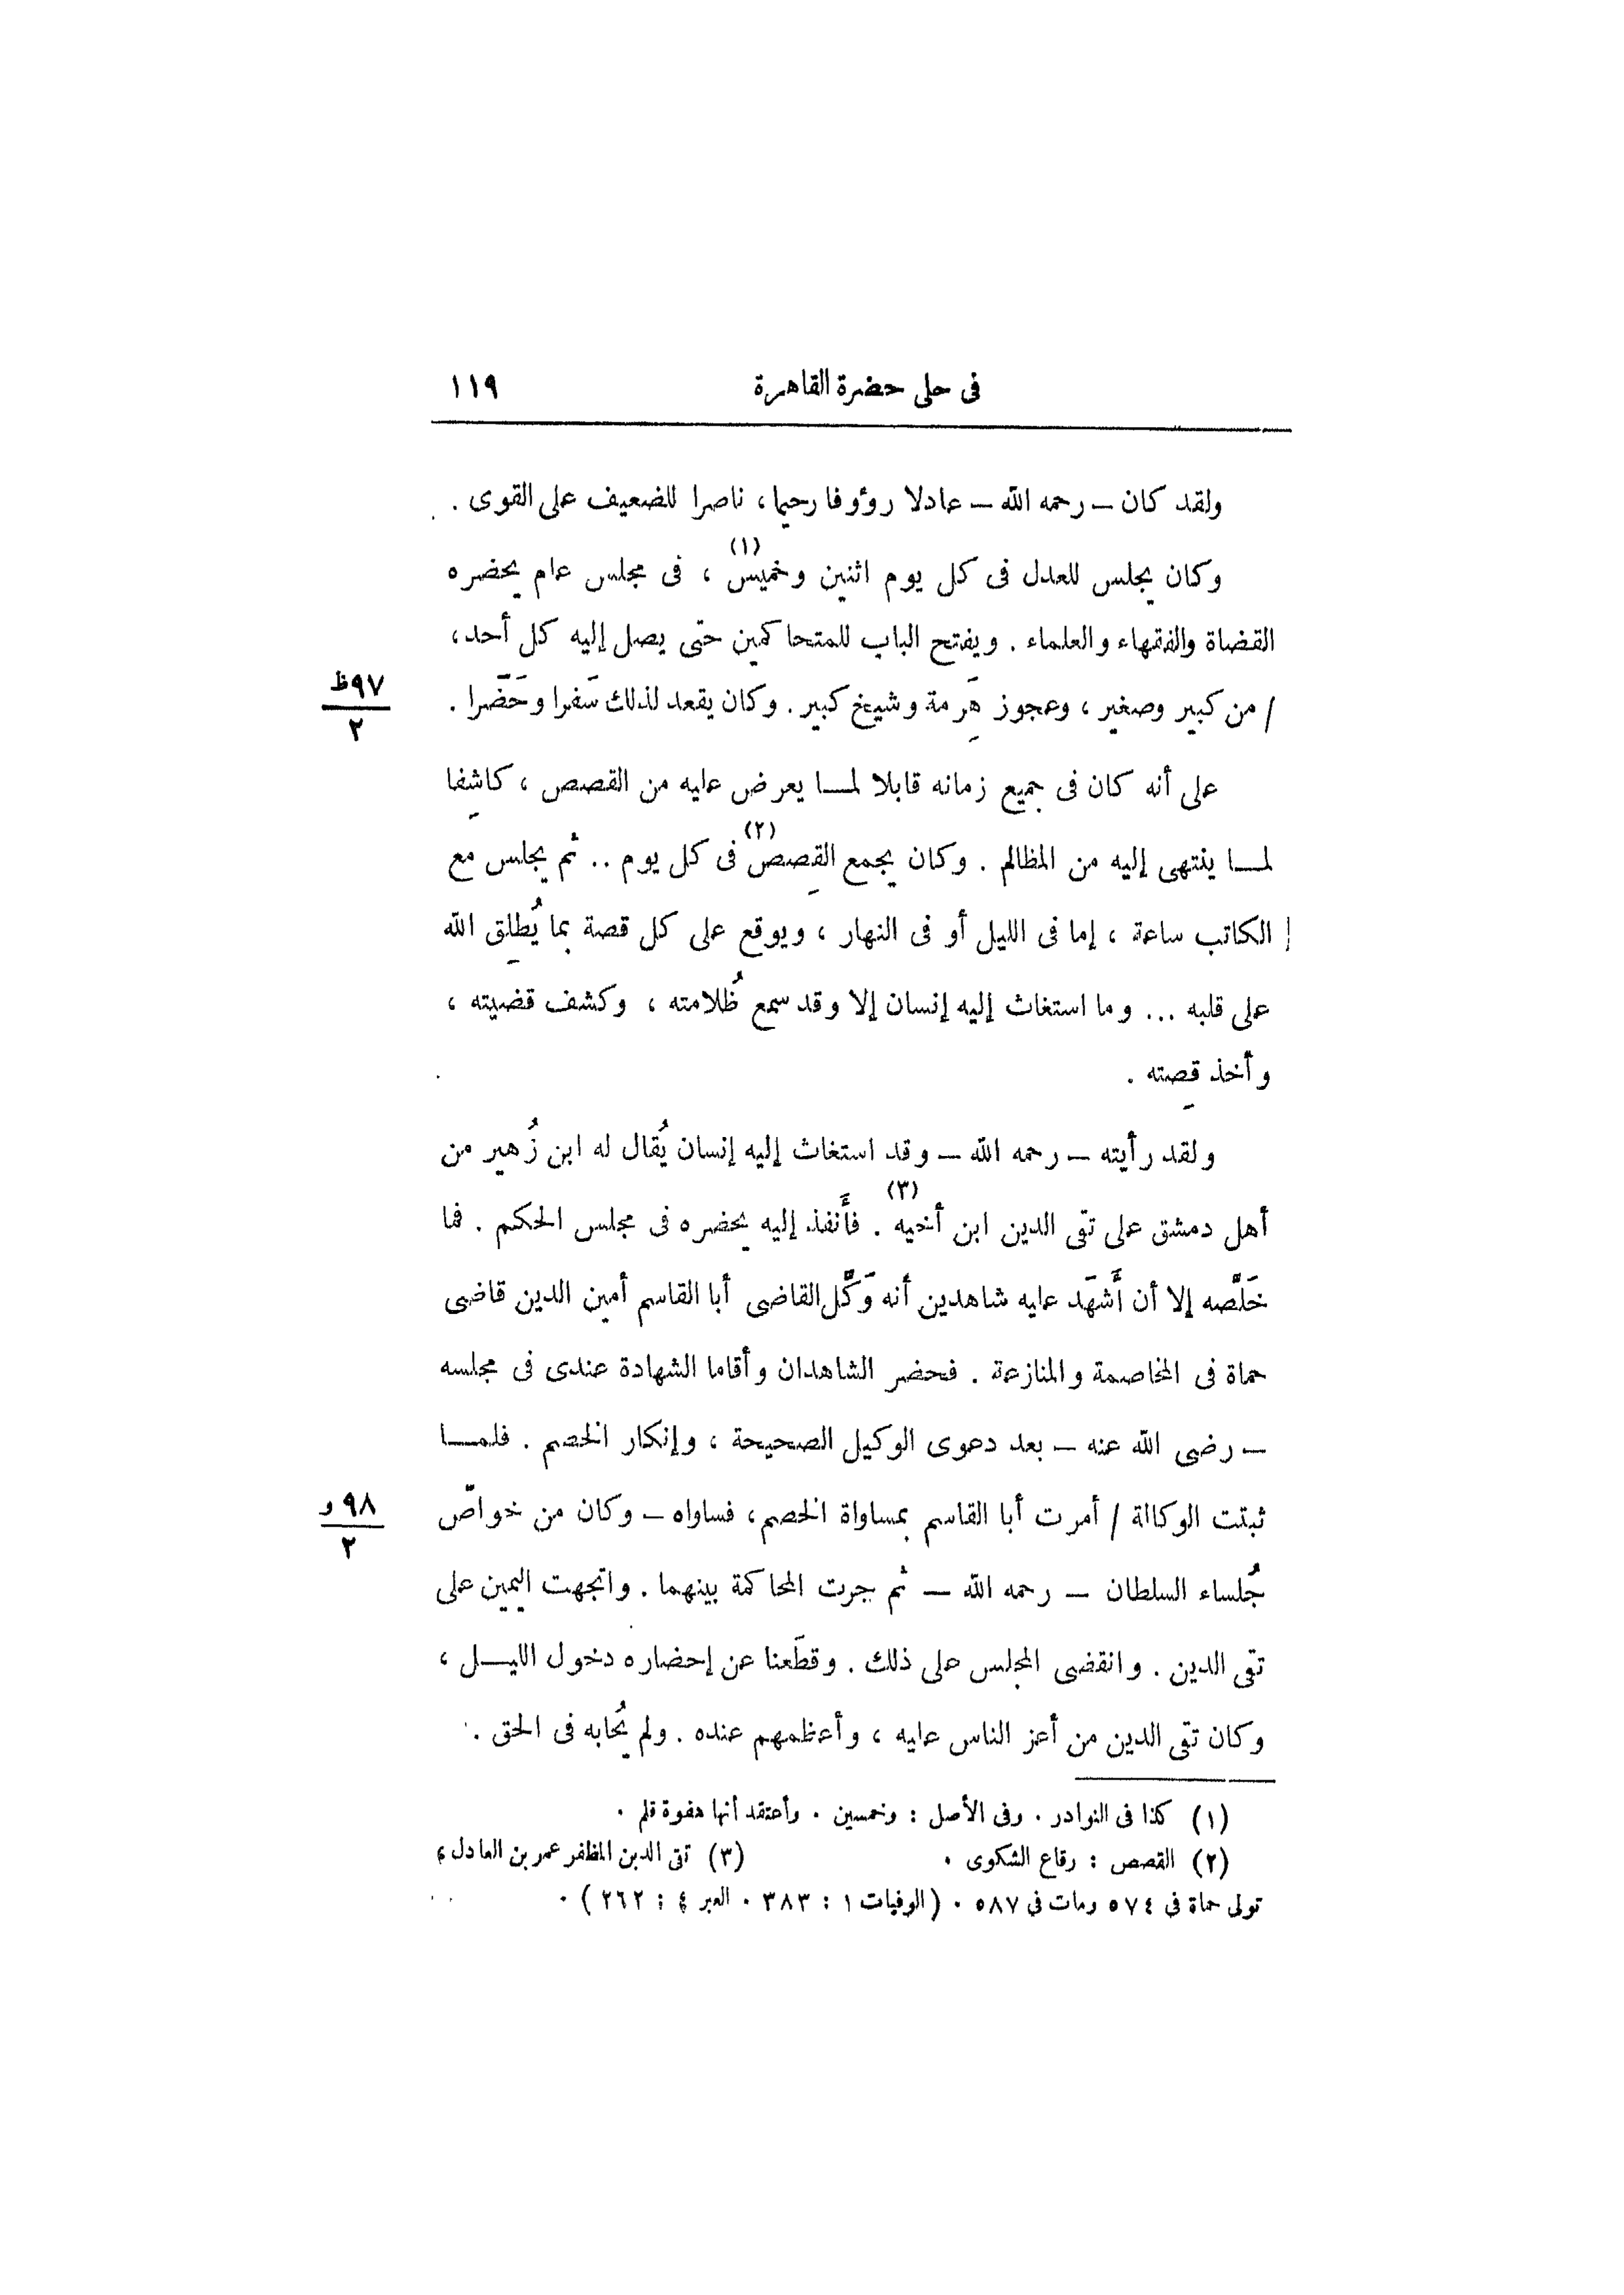 فى حلى حضرة القاهرة ١١٩
ولقد كان – رحمه الله – عادلا رؤوفا رحيما، ناصرا للضعيف على القوى .
وكان يجلس للعدل فى كل يوم اثنين وخميس (١) ، فى مجلس عام يحضره
القضاة والفقهاء والعلماء . ويفتح الباب للمتحاكمين حتى يصل إليه كل أحد،
/ من كبير وصغير ، وعجوز هَرِمة وشيخ كبير . وكان يقعد لذلك سَفرا وحَضَرا .
٩٧ظ
٢
على أنه كان فى جميع زمانه قابلا لمــا يعرض عليه من القصص ، كاشِفا
لمــا ينتهى إليه من المظالم . وكان يجمع القِصص (٢) فى كل يوم .. ثم يجلس مع
الكاتب ساعة ، إما فى الليل أو فى النهار ، ويوقع على كل قصة بما يُطلِق الله
على قلبه ... وما استغاث إليه إنسان إلا وقد سمع ظُلامته ، وكشف قضيته ،
وأخذ قِصته .
ولقد رأيته – رحمه الله – وقد استغاث إليه إنسان يُقال له ابن زُهير من
أهل دمشق على تقى الدين ابن أخيه (٣) . فأَنفذ إليه يحضره فى مجلس الحكم . فما
خَلَّصه إلا أن أَشهَد عليه شاهدين أنه وَكَّل القاضى أبا القاسم أمين الدين قاضى
حماة فى المخاصمة والمنازعة . فحضر الشاهدان وأقاما الشهادة عندى فى مجلسه
– رضى الله عنه – بعد دعوى الوكيل الصحيحة ، وإنكار الخصم . فلمــا
ثبتت الوكالة / أمرت أبا القاسم بمساواة الخصم، فساواه – وكان من خواصّ
٩٨ و
٢
جُلساء السلطان – رحمه الله – ثم جرت المحاكمة بينهما . واتجهت اليمين على
تقى الدين . وانقضى المجلس على ذلك . وقطَعنا عن إحضاره دخول الليــل ،
وكان تقى الدين من أعز الناس عليه ، وأعظمهم عنده . ولم يُحابه فى الحق .
(١) كذا فى النوادر . وفى الأصل : وخمسين . وأعتقد أنها هفوة قلم .
(٢) القصص : رقاع الشكوى . (٣) تقى الدين المظفر عمر بن العادل ،
تولى حماة فى ٥٧٤ ومات فى ٥٨٧ . (الوفيات ١ : ٣٨٣ . العبر ٤ : ٢٦٢ ) .